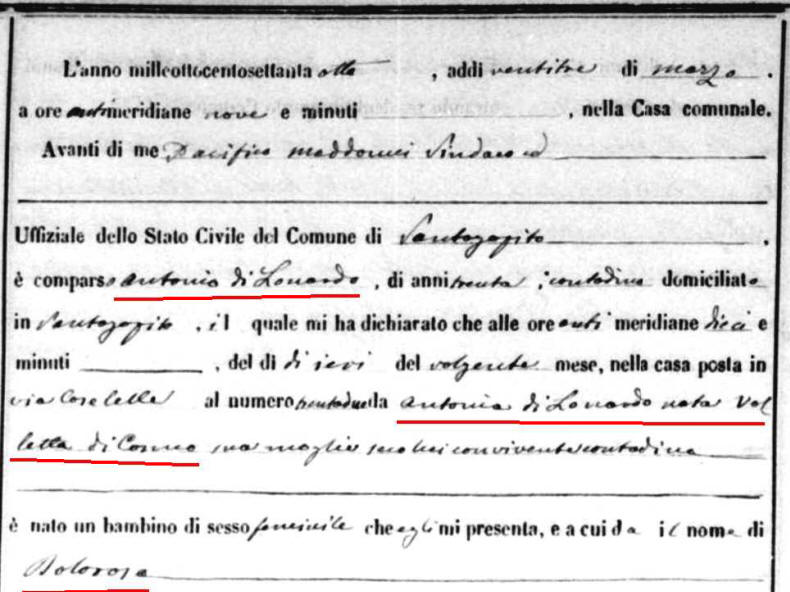 L'anno milleottocentosettanta otto , addi ventitre di marzo .
a ore antimeridiane nove e minuti , nella Casa comunale.
Avanti di me Pacifico Sindaco
Uffiziale dello Stato Civile del Comune di Santogapito .
è comparso Antonio di Lonardo , di anni trenta , contadino domiciliato
in Santogapito , il quale mi ha dichiarato che alle ore anti meridiane dieci e
minuti , del dì di ieri del volgente mese, nella casa posta in
via Caselelle al numero trentadue da Antonia di Lonardo nata Val
lella di Cosmo sua moglie seco lui convivente contadina
è nato un bambino di sesso feminile che egli mi presenta, e a cui da il nome di
Dolorosa